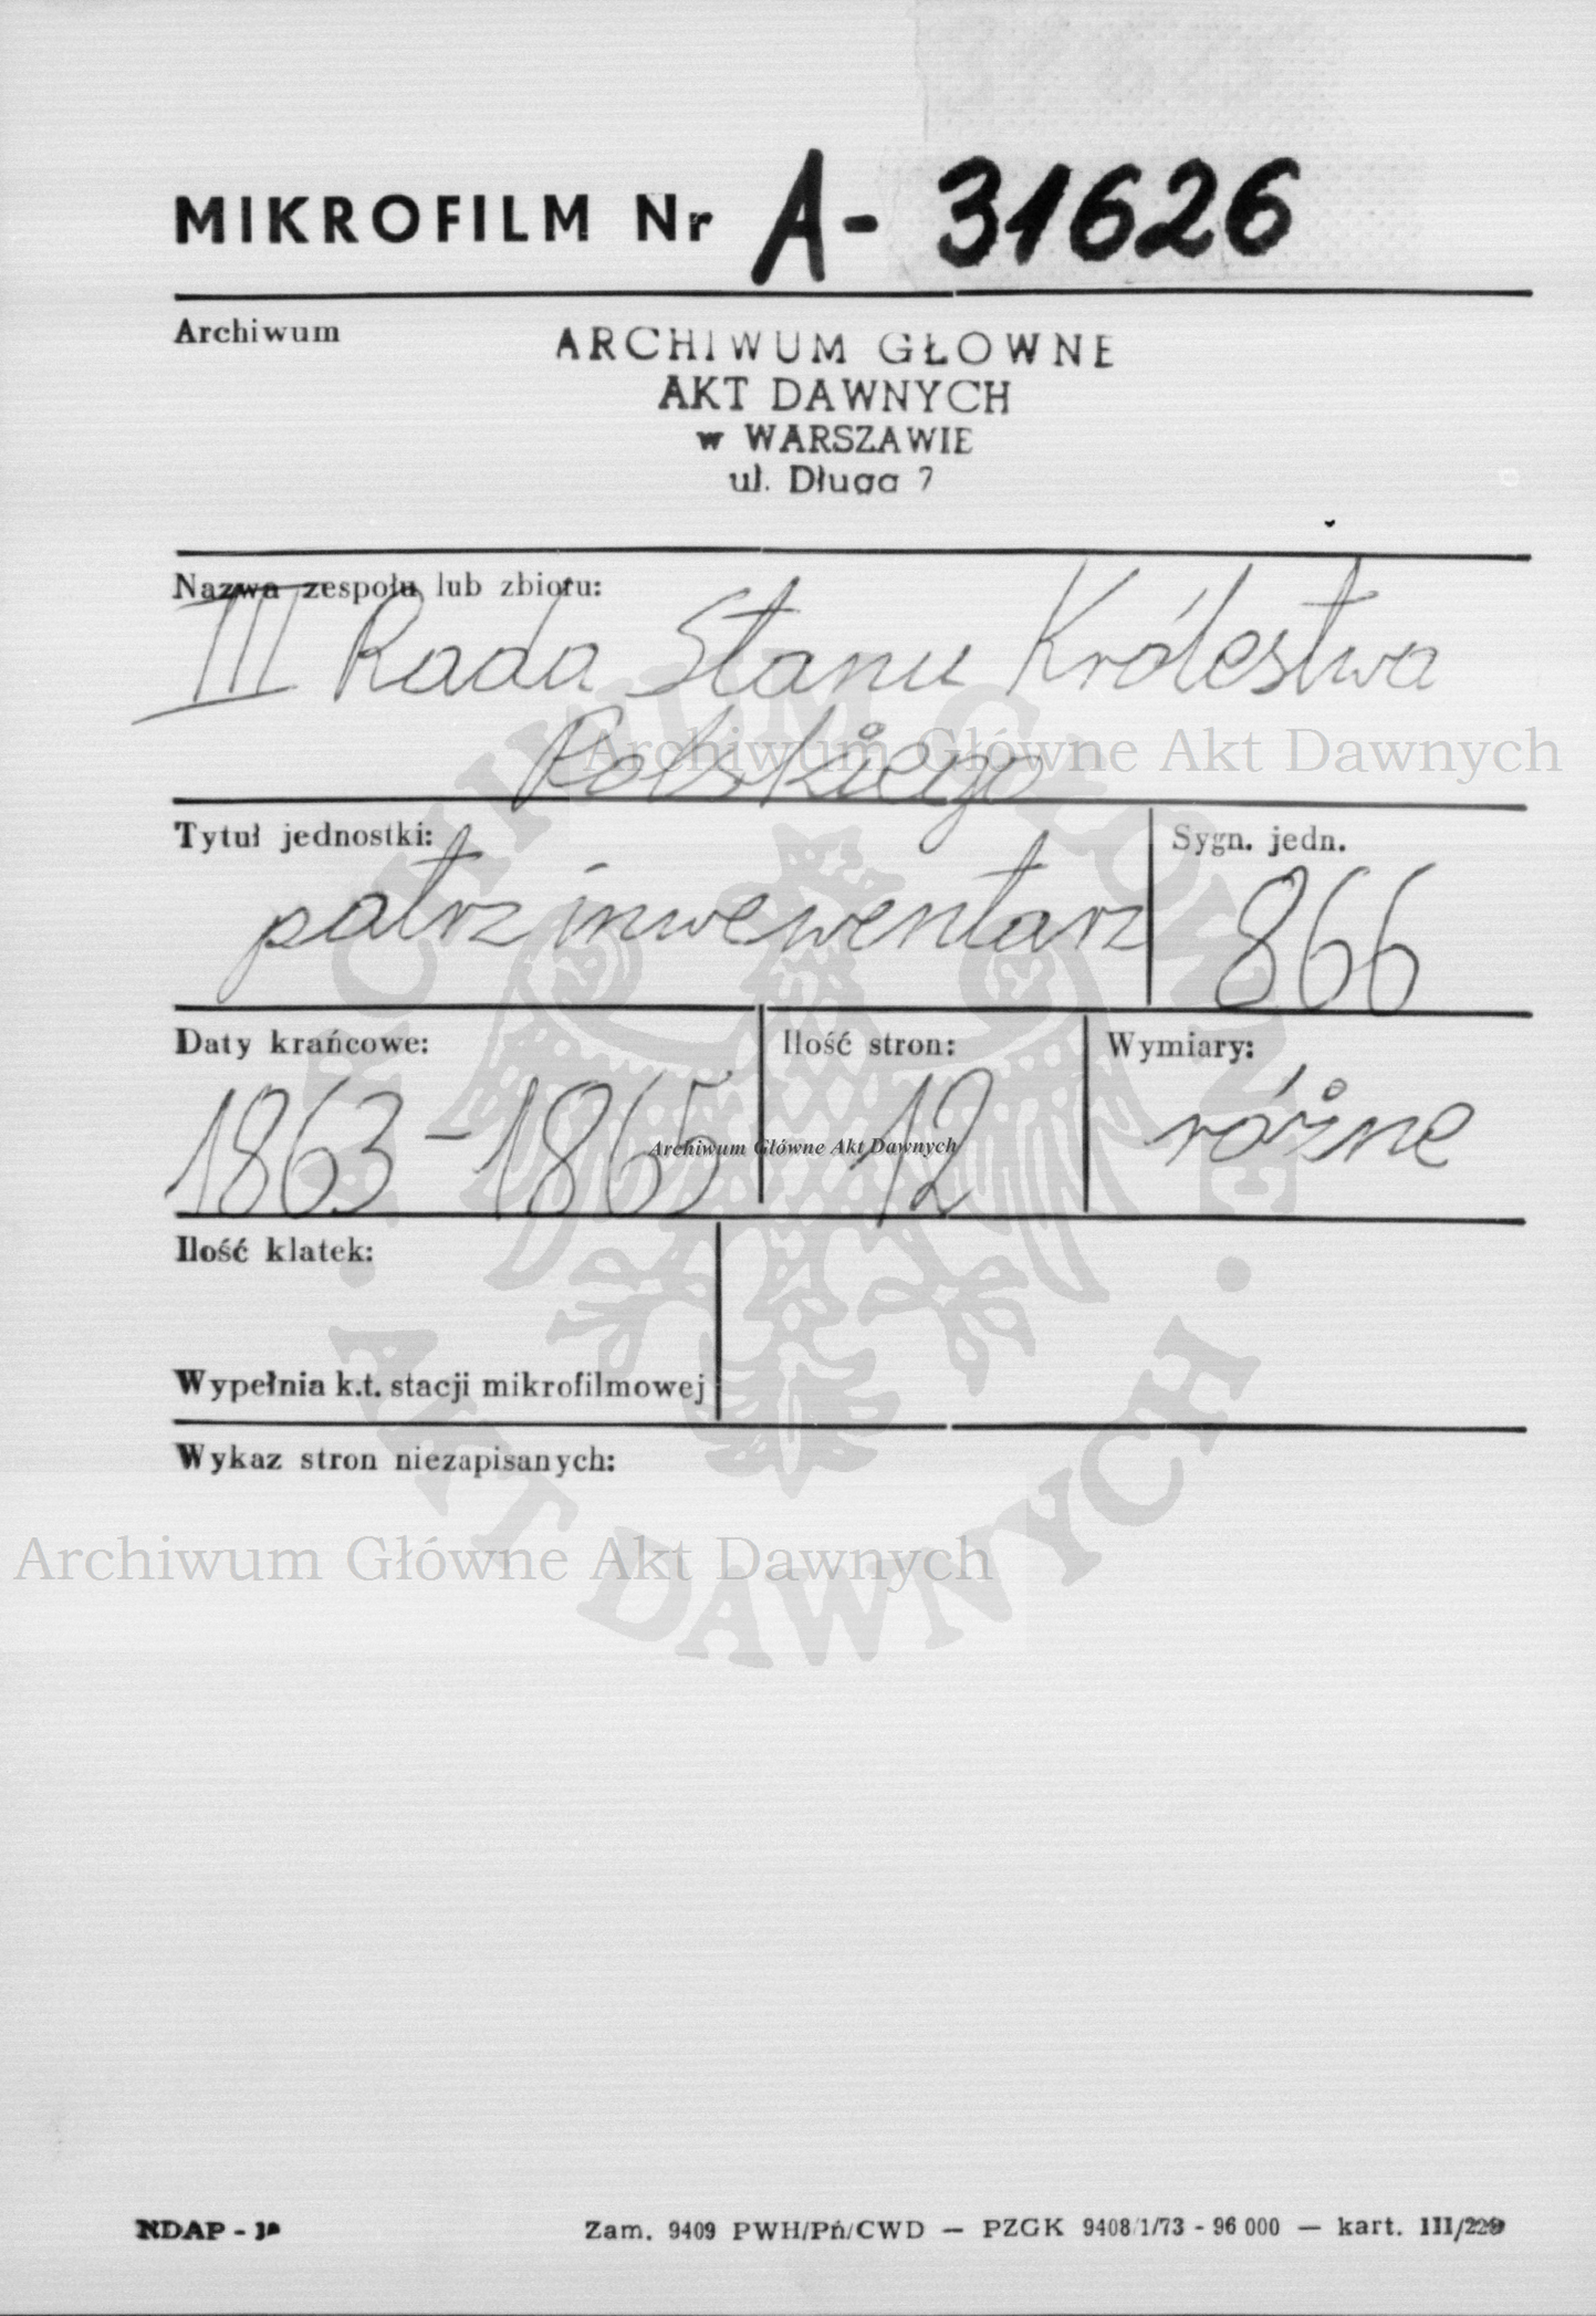 MIKROFILM Nr A- 31626
Archiwum
ARCHIWUM GŁOWNE
AKT DAWNYCH
w WARSZAWIE
ul. Długa 7
Nazwa zespołu lub zbioru:
III Rada Stanu Królestwa
Polskiego
Archiwum Główne Akt Dawnych
Tytuł jednostki:
patrz inwewentarz
Sygn. jedn.
866
Daty krańcowe:
1863-1865
Ilość stron:
12
Wymiary:
różne
Archiwum Główne Akt Dawnych
Ilość klatek:
Wypełnia k.t. stacji mikrofilmowej
Wykaz stron niezapisanych:
Archiwum Główne Akt Dawnych
ARCHIWUM GŁÓWNE
· AKT DAWNYCH ·
NDAP -
Zam. 9409 PWH/Pń/CWD — PZGK 9408/1/73 - 96 000 — kart. III/229